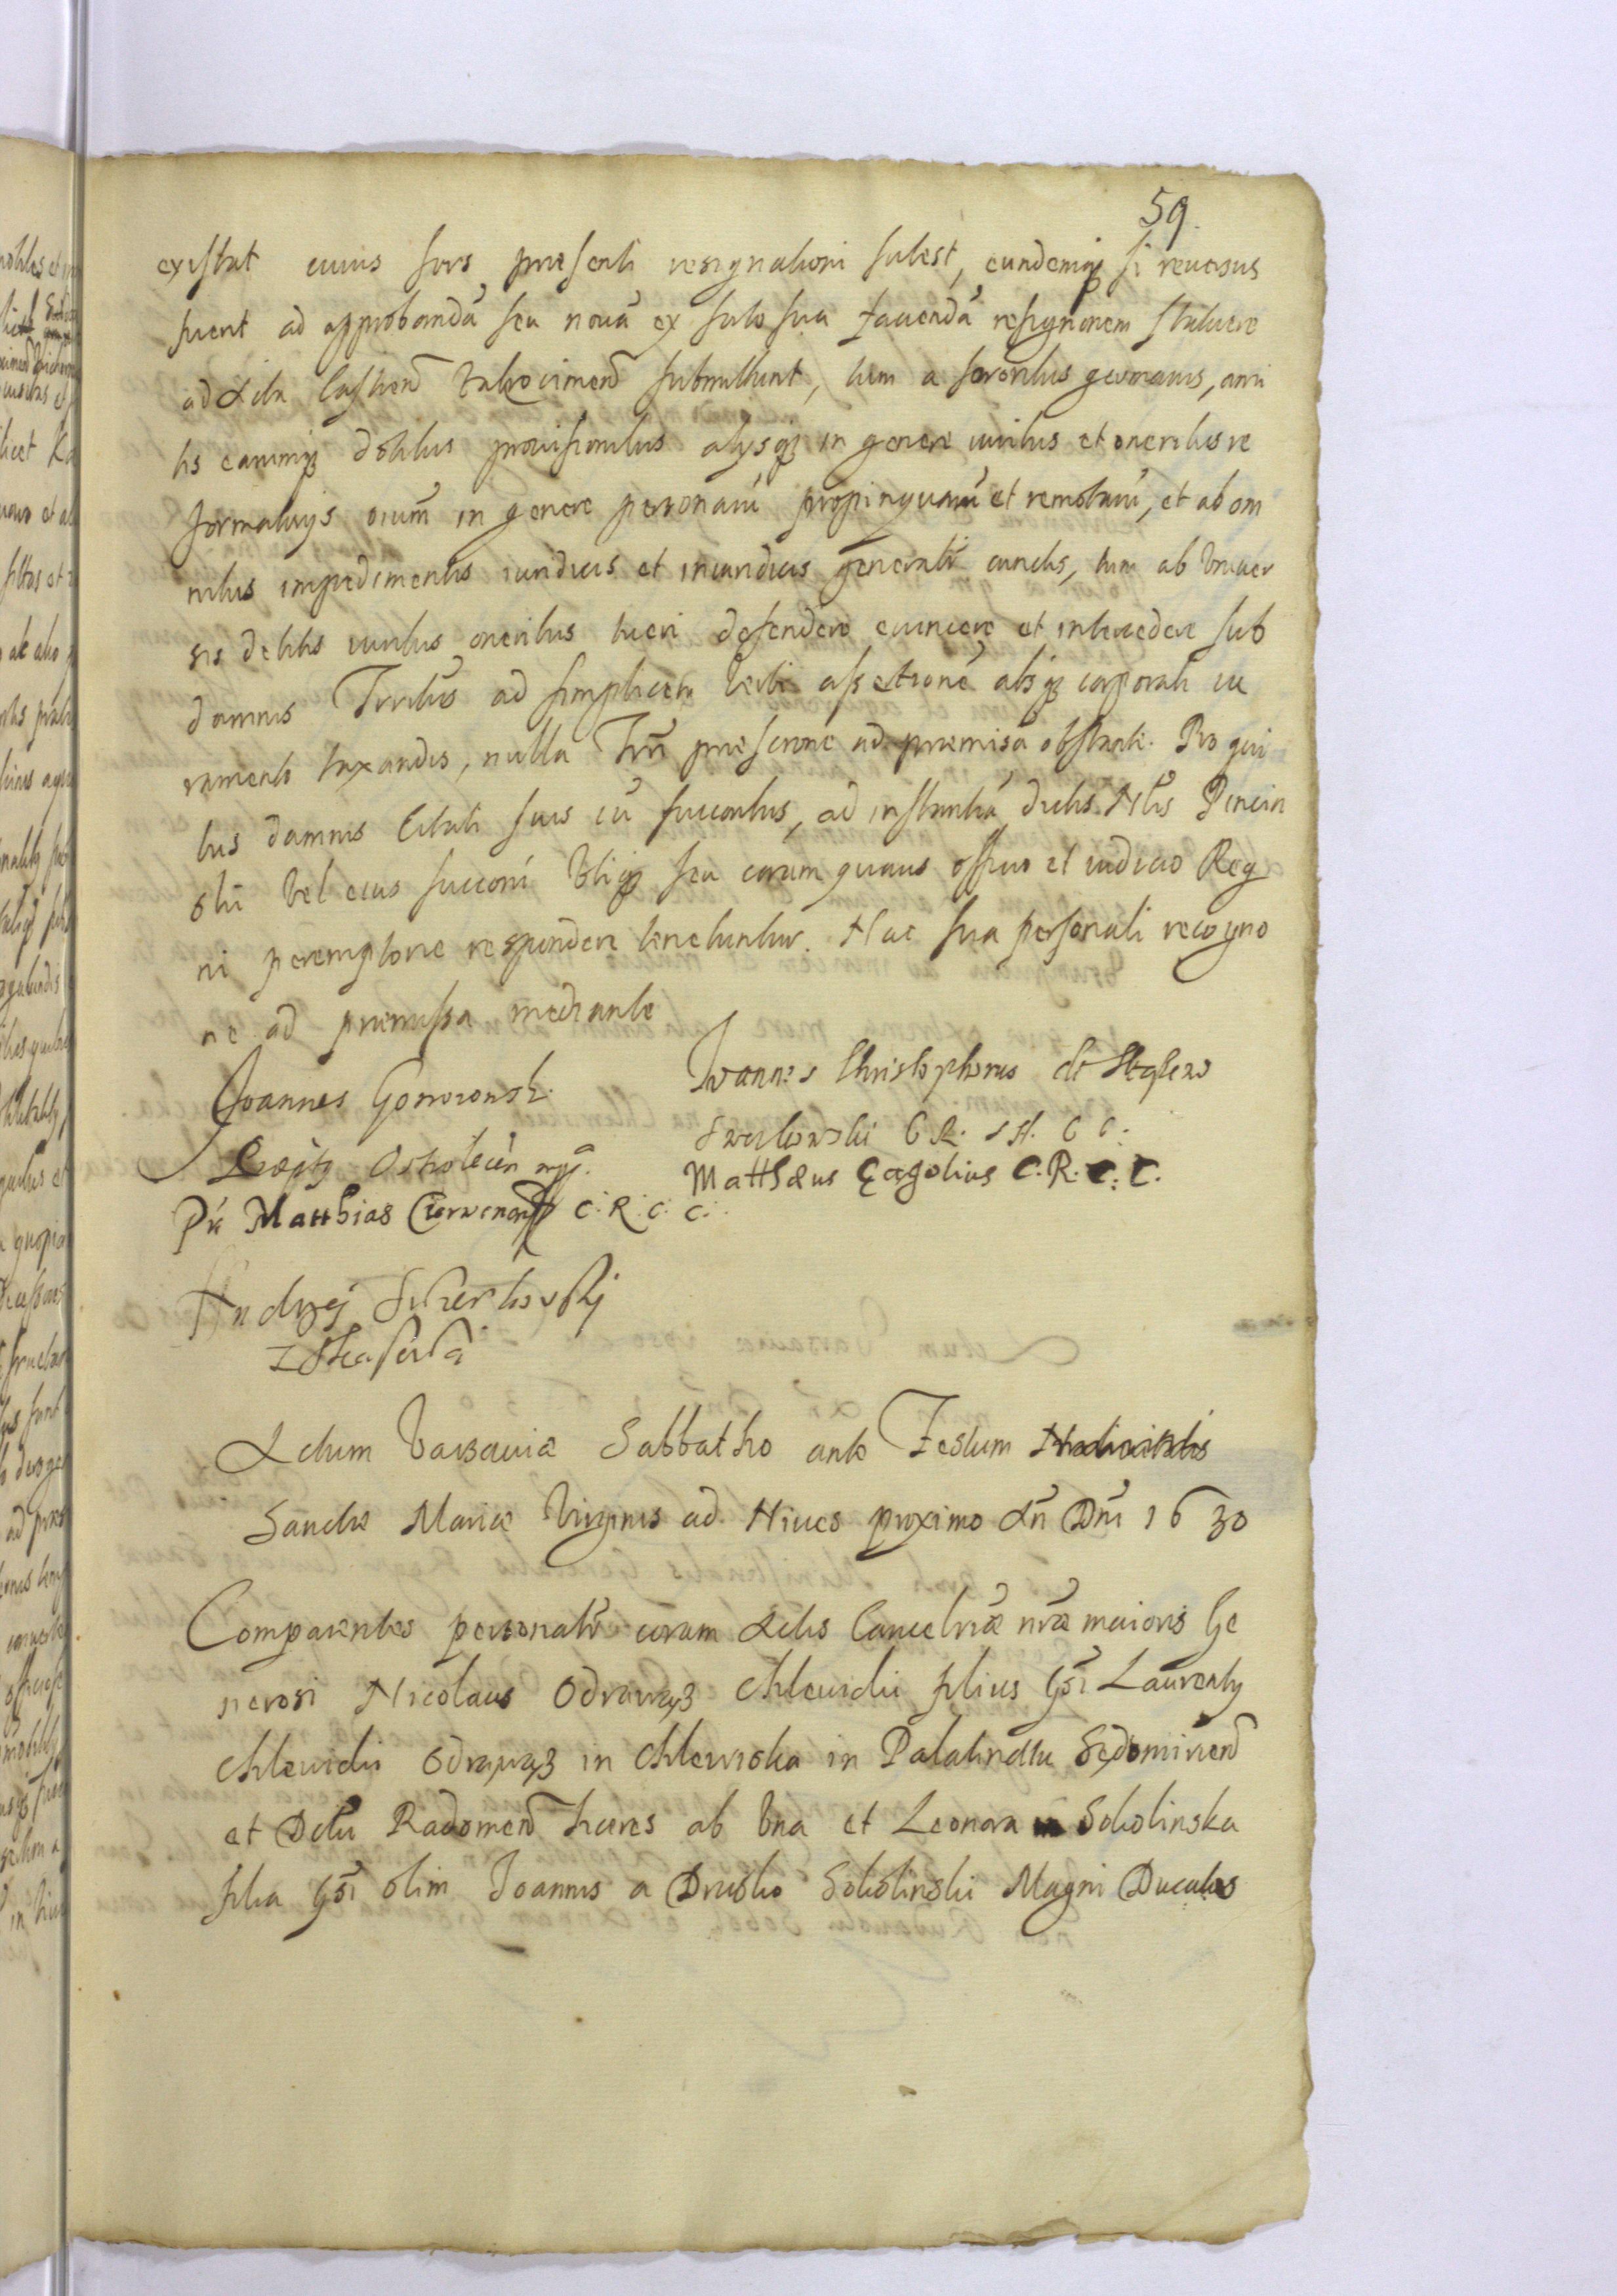 59.
existat cuius sors praesenti resignationi subest, eundemq si reversus
fuerit ad approbandã seu novã ex sorte sua faciendã resignonem statuere
ad Acta Castren̄ submittunt, tum a sororibus germanis, ami
tis earumq dotibus provisionibus alijsq in genere iuribus et oneribus re
formatorijs oiũm in genere personarũ propinquarũ et remotarũ, et ab om
nibus impedimentis iuridicis et iniuridicis generalr̃ cunctis, tum ab univer
sis debitis iuribus oneribus tueri defendere evincere et intercedere sub
damnis Terribus ad simplicem verbi assertionẽ absq corporali iu
ramento taxandis, nulla Trr̃i praescrione ad praemissa obstante. Pro qui
bus damnis Citati suis cũ succoribus, ad instantiã dictis Nblis Pincin
ski vel eius succorũ Ubiq seu coram quovis officio et iudicio Reg
ni peremptorie respondere tenebuntur. Hac sua personali recogno
ne ad praemissa mediante
Joannes Gorzewski
Regẽs Ostrolecen̄ mp.
Joannes Christophorus de
C R. S M. C C.
Matthaeus Cagolius C. R. C. C.
Matthias C. R. C. C.
Andrzej
Actum Varsaviae Sabbatho ante Festum Nativitatis
Sanctae Mariae Virginis ad Nives proximo An̄ Dni 1630
Comparentes personalr̃ coram Actis Cancelriae nr̃ae maioris Ge
nerosi Nicolaus Odrawąz Chlewicki filius Gsi Laurentij
Chlewicki Odrawąz in Chlewiska in Palatinattu Sędomirien̄
et Dctu Radomien̄ haeres ab una et Leonora Sokolinska
filia Gsi olim Joannis a Drucko Sokolinski Magni Ducatus